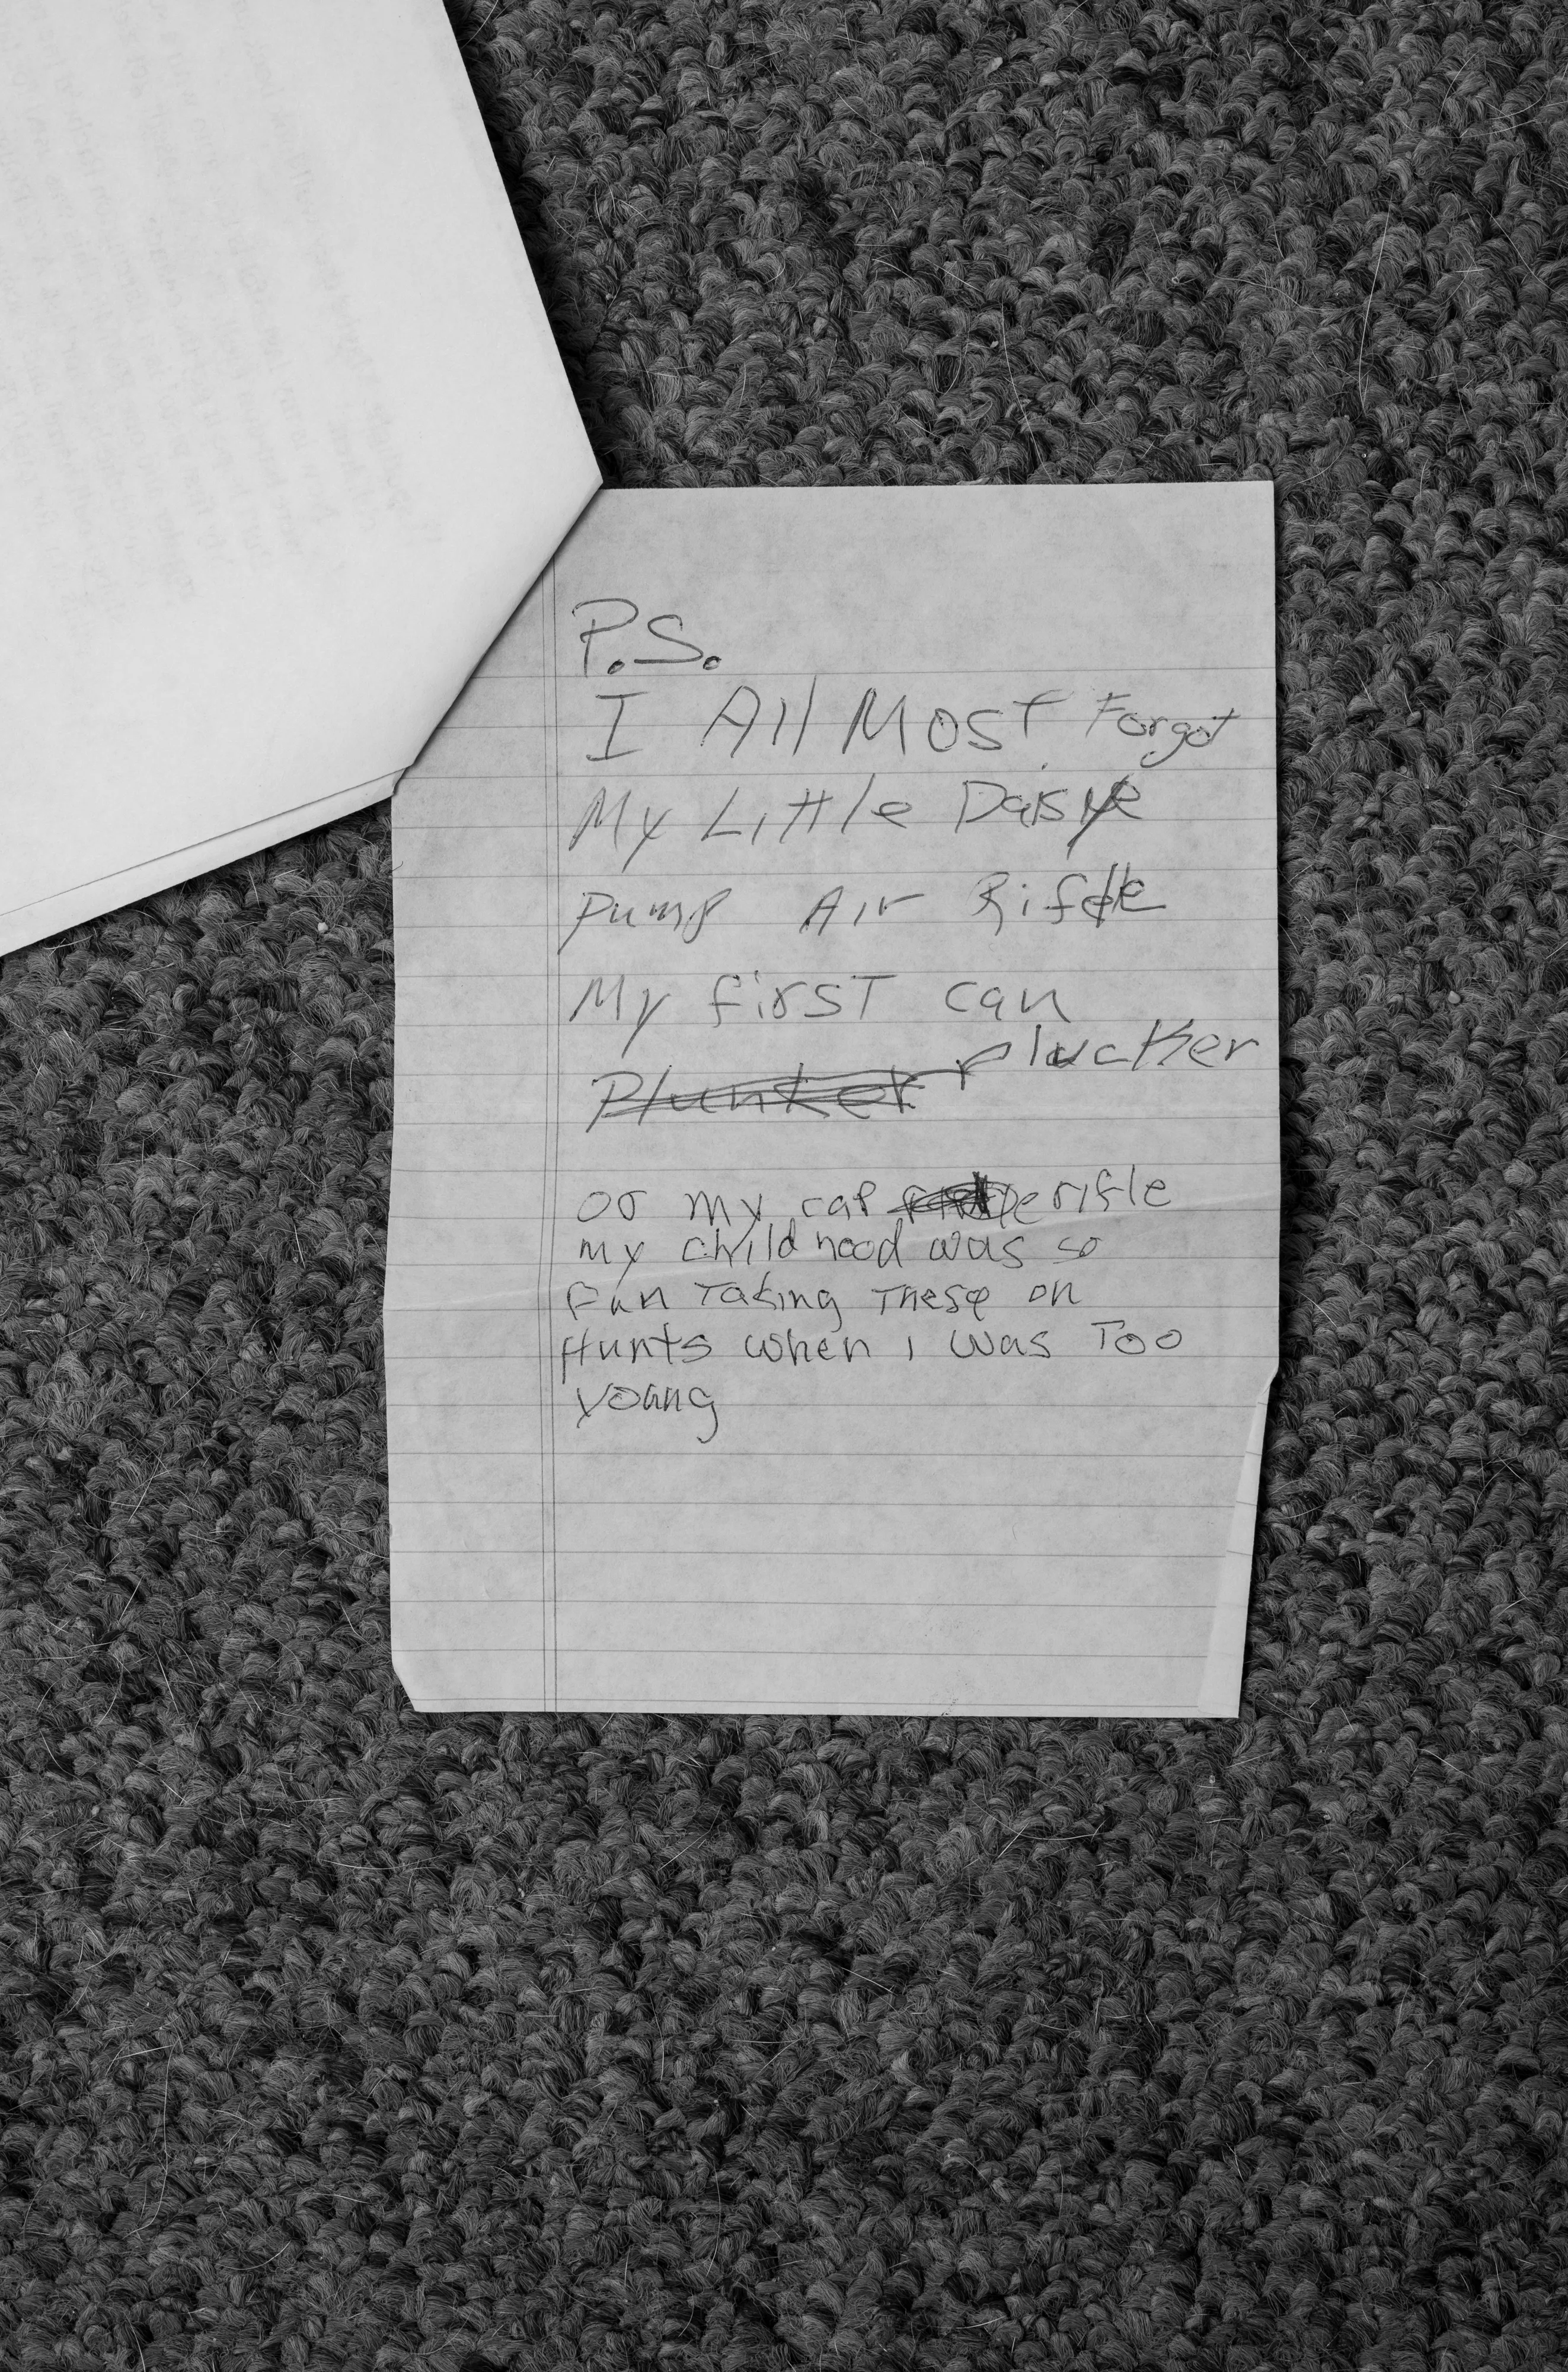 P.S.
I All MOST Forgot
My Little Daisye
Pump Air Rifle
My first can
Plunker plucker
or my cap rifle
my child hood was so
fun Taking These on
Hunts when i was Too
young